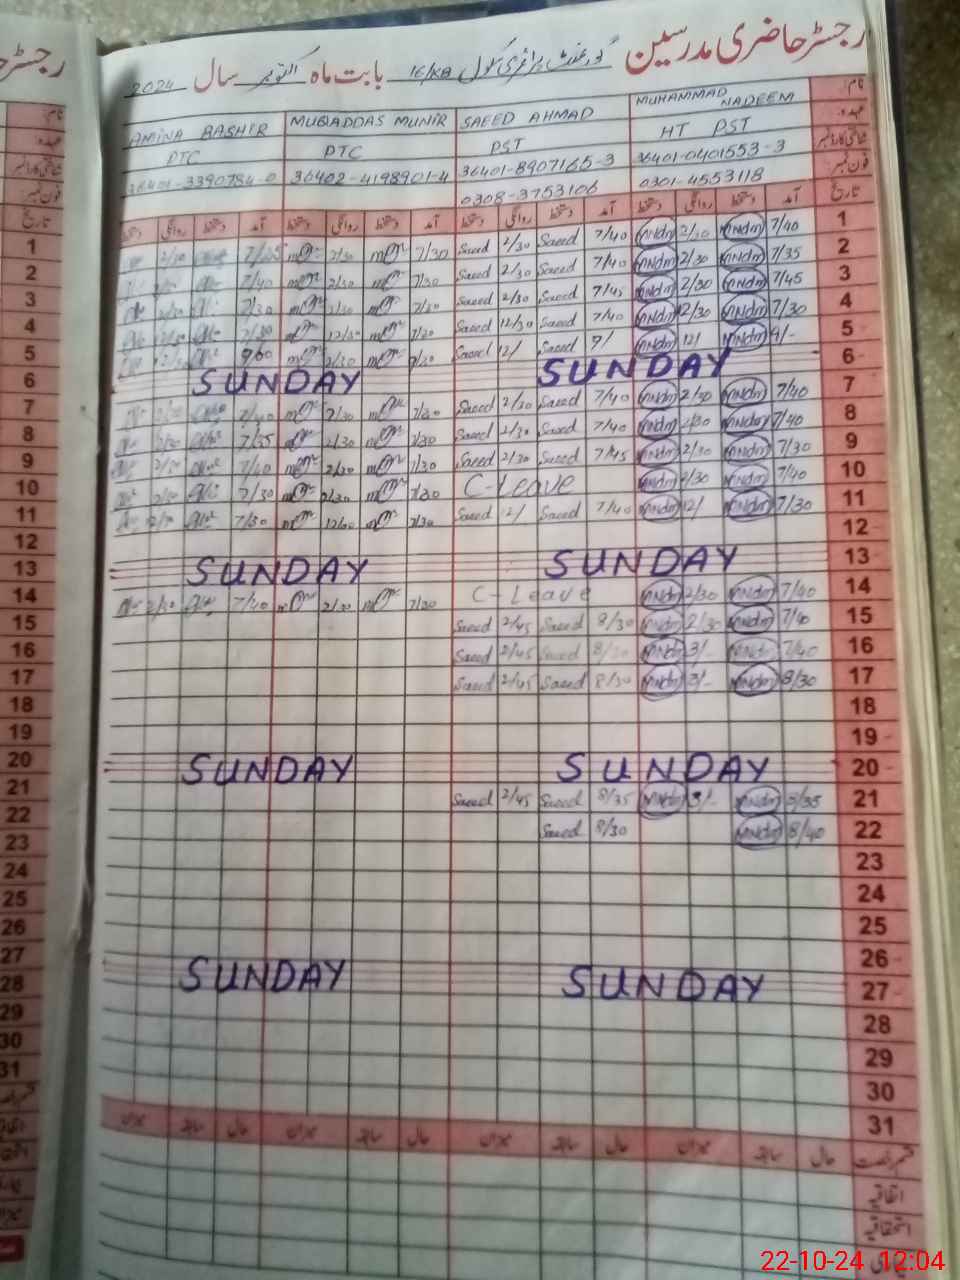 رجسٹر حاضری مدرسین گورنمنٹ پرائمری سکول 16/KB بابت ماہ اکتوبر سال 2024
AMINA BASHIR MUQADDAS MUNIR SAEED AHMAD MUHAMMAD NADEEM نام
PTC PTC PST HT PST عہدہ
36401-3390784-0 36402-4198901-4 36401-8907165-3 36401-0401553-3 شناختی کارڈ نمبر
0308-3753106 0301-4553118 فون نمبر
دستخط روانگی دستخط آمد دستخط روانگی دستخط آمد دستخط روانگی دستخط آمد دستخط روانگی دستخط آمد تاریخ
1 2/30 7/35 2/30 7/30 Saeed 2/30 Saeed 7/40 MNdm 2/30 MNdm 7/40 1
2 7/40 2/30 7/30 Saeed 2/30 Saeed 7/40 MNdm 2/30 MNdm 7/35 2
3 2/30 7/30 2/30 7/30 Saeed 2/30 Saeed 7/45 MNdm 2/30 MNdm 7/45 3
4 7/30 12/30 7/30 Saeed 12/30 Saeed 7/40 MNdm 12/30 MNdm 7/30 4
5 Saeed 12/ Saeed 9/ MNdm 12/ MNdm 9/- 5
6 SUNDAY SUNDAY 6
7 7/40 2/30 7/30 Saeed 2/30 Saeed 7/40 MNdm 2/30 MNdm 7/40 7
8 7/35 2/30 7/30 Saeed 2/30 Saeed 7/40 MNdm 2/30 MNdm 7/40 8
9 7/40 2/30 7/30 Saeed 2/30 Saeed 7/45 MNdm 2/30 MNdm 7/30 9
10 2/30 7/30 2/30 7/30 C-Leave MNdm 2/30 MNdm 7/40 10
11 7/30 12/30 7/30 Saeed 12/ Saeed 7/40 MNdm 12/ MNdm 7/30 11
12 12
13 SUNDAY SUNDAY 13
14 2/30 7/40 2/30 7/30 C-Leave MNdm 2/30 MNdm 7/40 14
15 Saeed 2/45 Saeed 8/30 MNdm 2/30 MNdm 7/40 15
16 Saeed 2/45 Saeed MNdm 3/- MNdm 7/40 16
17 Saeed 2/45 Saeed 8/30 MNdm 3/- MNdm 8/30 17
18 18
19 19
20 SUNDAY SUNDAY 20
21 Saeed 2/45 Saeed 8/35 MNdm 3/- MNdm 8/35 21
22 Saeed 8/30 MNdm 8/40 22
23 23
24 24
25 25
26 26
27 SUNDAY SUNDAY 27
28 28
29 29
30 30
31 31
میزان سابقہ حال میزان سابقہ حال میزان سابقہ حال میزان سابقہ حال قسم رخصت
اتفاقیہ
استحقاقیہ
22-10-24 12:04